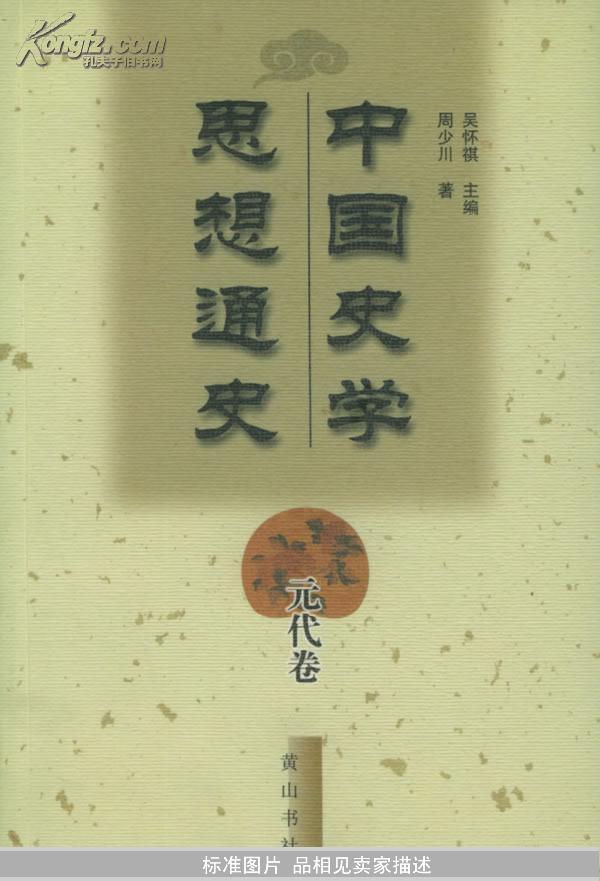 Kongfz.com
孔夫子旧书网
吴怀祺 主编
周少川 著
中国史学
思想通史
元代卷
黄山书社
标准图片 品相见卖家描述